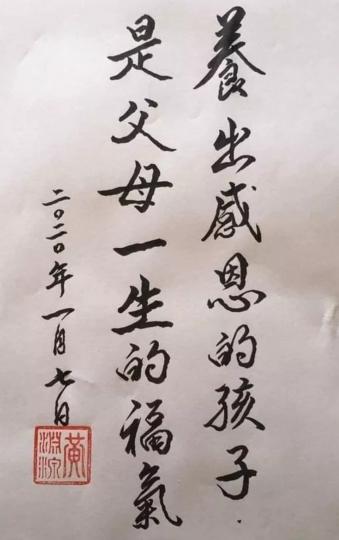 養出感恩的孩子
是父母一生的福氣
二〇二〇年一月七日
黃淵深